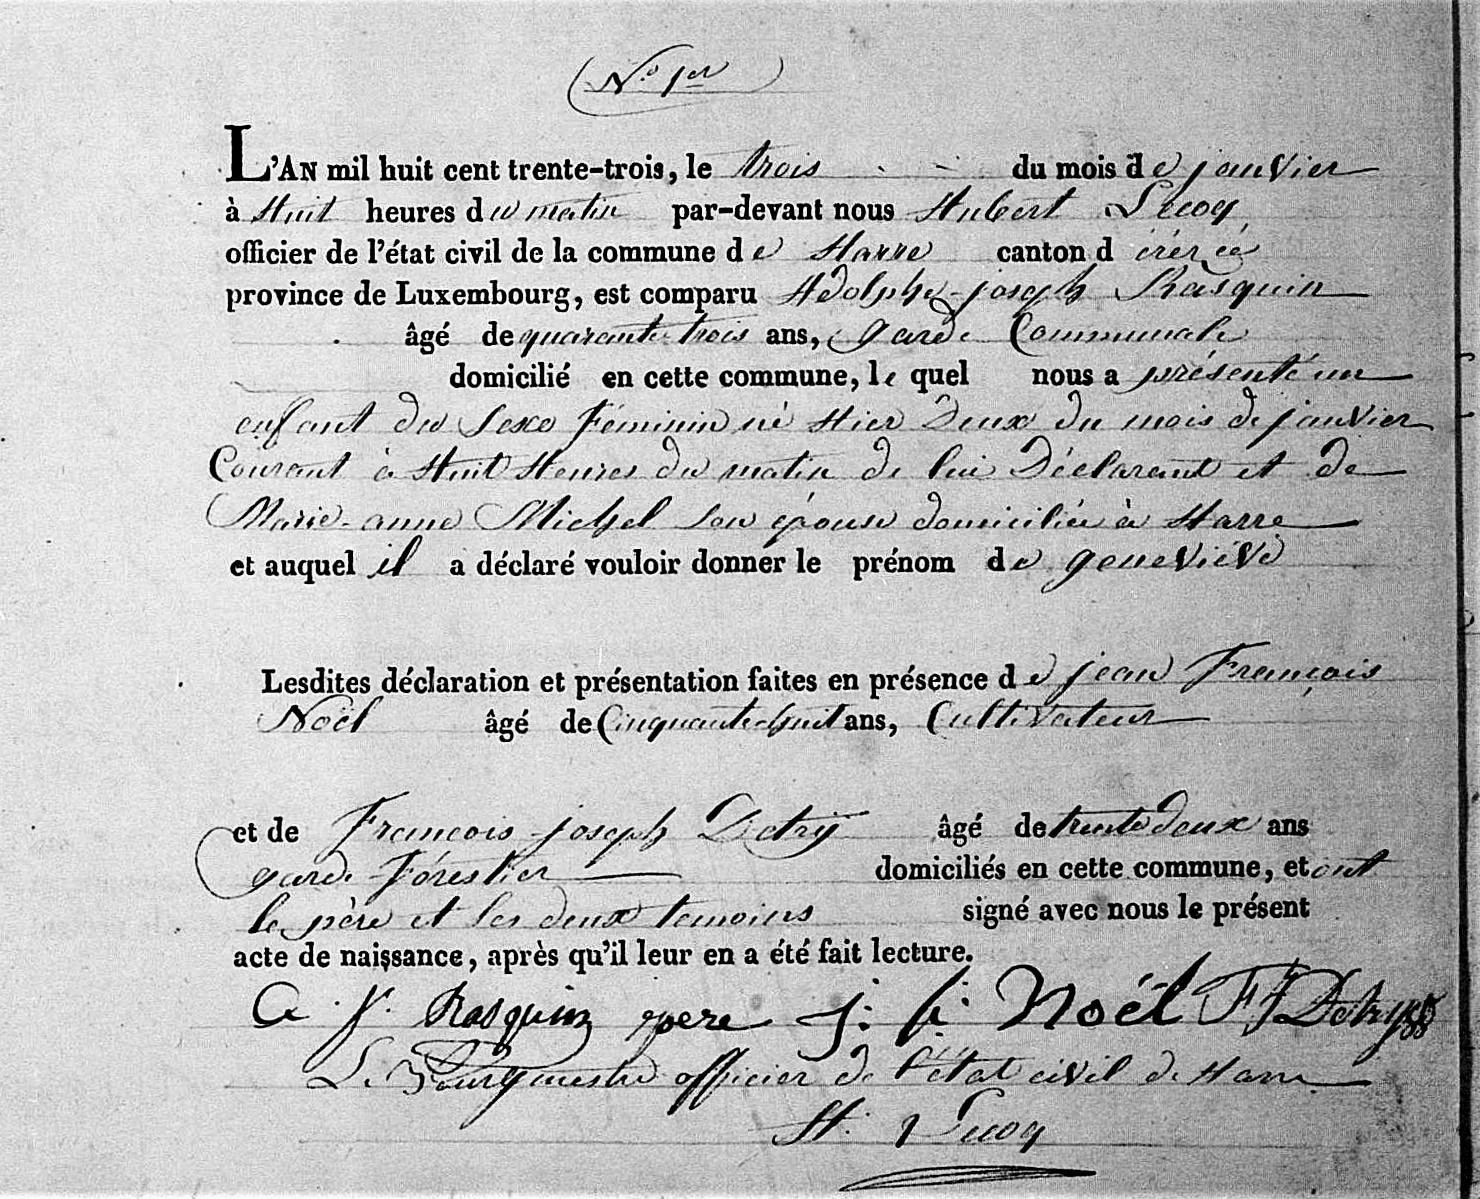 (N.o 1er)
L'AN mil huit cent trente-trois, le trois du mois de janvier
à Huit heures du matin par-devant nous Hubert Lecoq
officier de l'état civil de la commune de Harre canton d'érézée
province de Luxembourg, est comparu Adolphe-joseph Rasquin
âgé de quarante trois ans, garde Communale
domicilié en cette commune, le quel nous a présenté un
enfant du Sexe Féminin né Hier Deux du mois de janvier
Courant à Huit Heures du matin de lui Déclarant et de
Marie-anne Michel son épouse domiciliée à Harre
et auquel il a déclaré vouloir donner le prénom de geneviève
Lesdites déclaration et présentation faites en présence de jean François
Noël âgé de Cinquante huit ans, Cultivateur
et de François joseph Detrÿ âgé de trente deux ans
garde Forestier domiciliés en cette commune, et ont
le père et les deux temoins signé avec nous le présent
acte de naissance, après qu'il leur en a été fait lecture.
a j. Rasquin pere j: f: Noél F J Detry
Le Bourgmestre officier de l'état civil de Harre
H. Lecoq